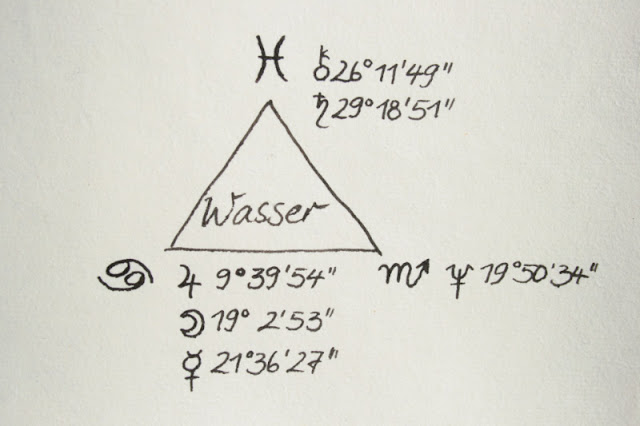 ♓ ⚷ 26°11'49"
♄ 29°18'51"
Wasser
♋ ♃ 9°39'54" ♏ ♆ 19°50'34"
☽ 19° 2'53"
☿ 21°36'27"